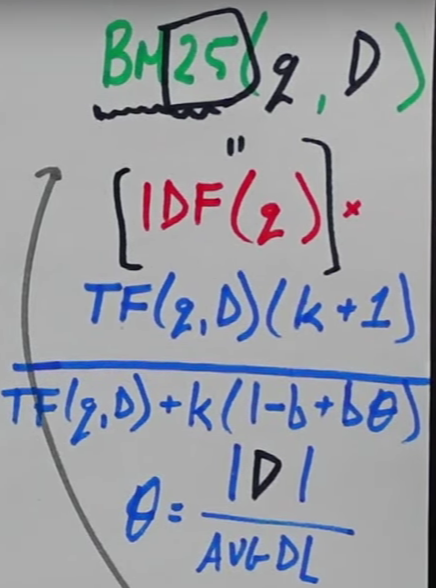 BM25(q, D)
"
[IDF(q)] ×
TF(q,D)(k+1)
TF(q,D)+k(1-b+bθ)
θ = |D|
AVGDL